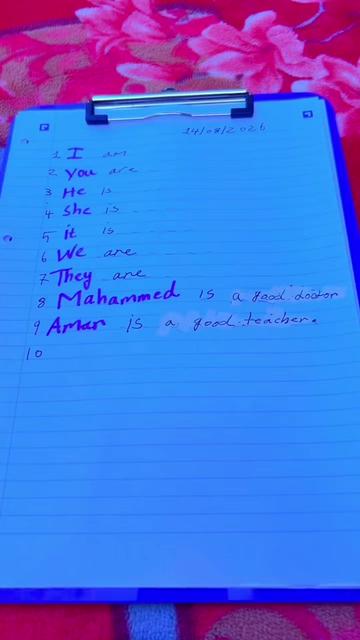 14/08/2026
1 I am
2 You are
3 He is
4 She is
5 it is
6 We are
7 They are
8 Mahammed is a good doctor
9 Aman is a good teacher.
10